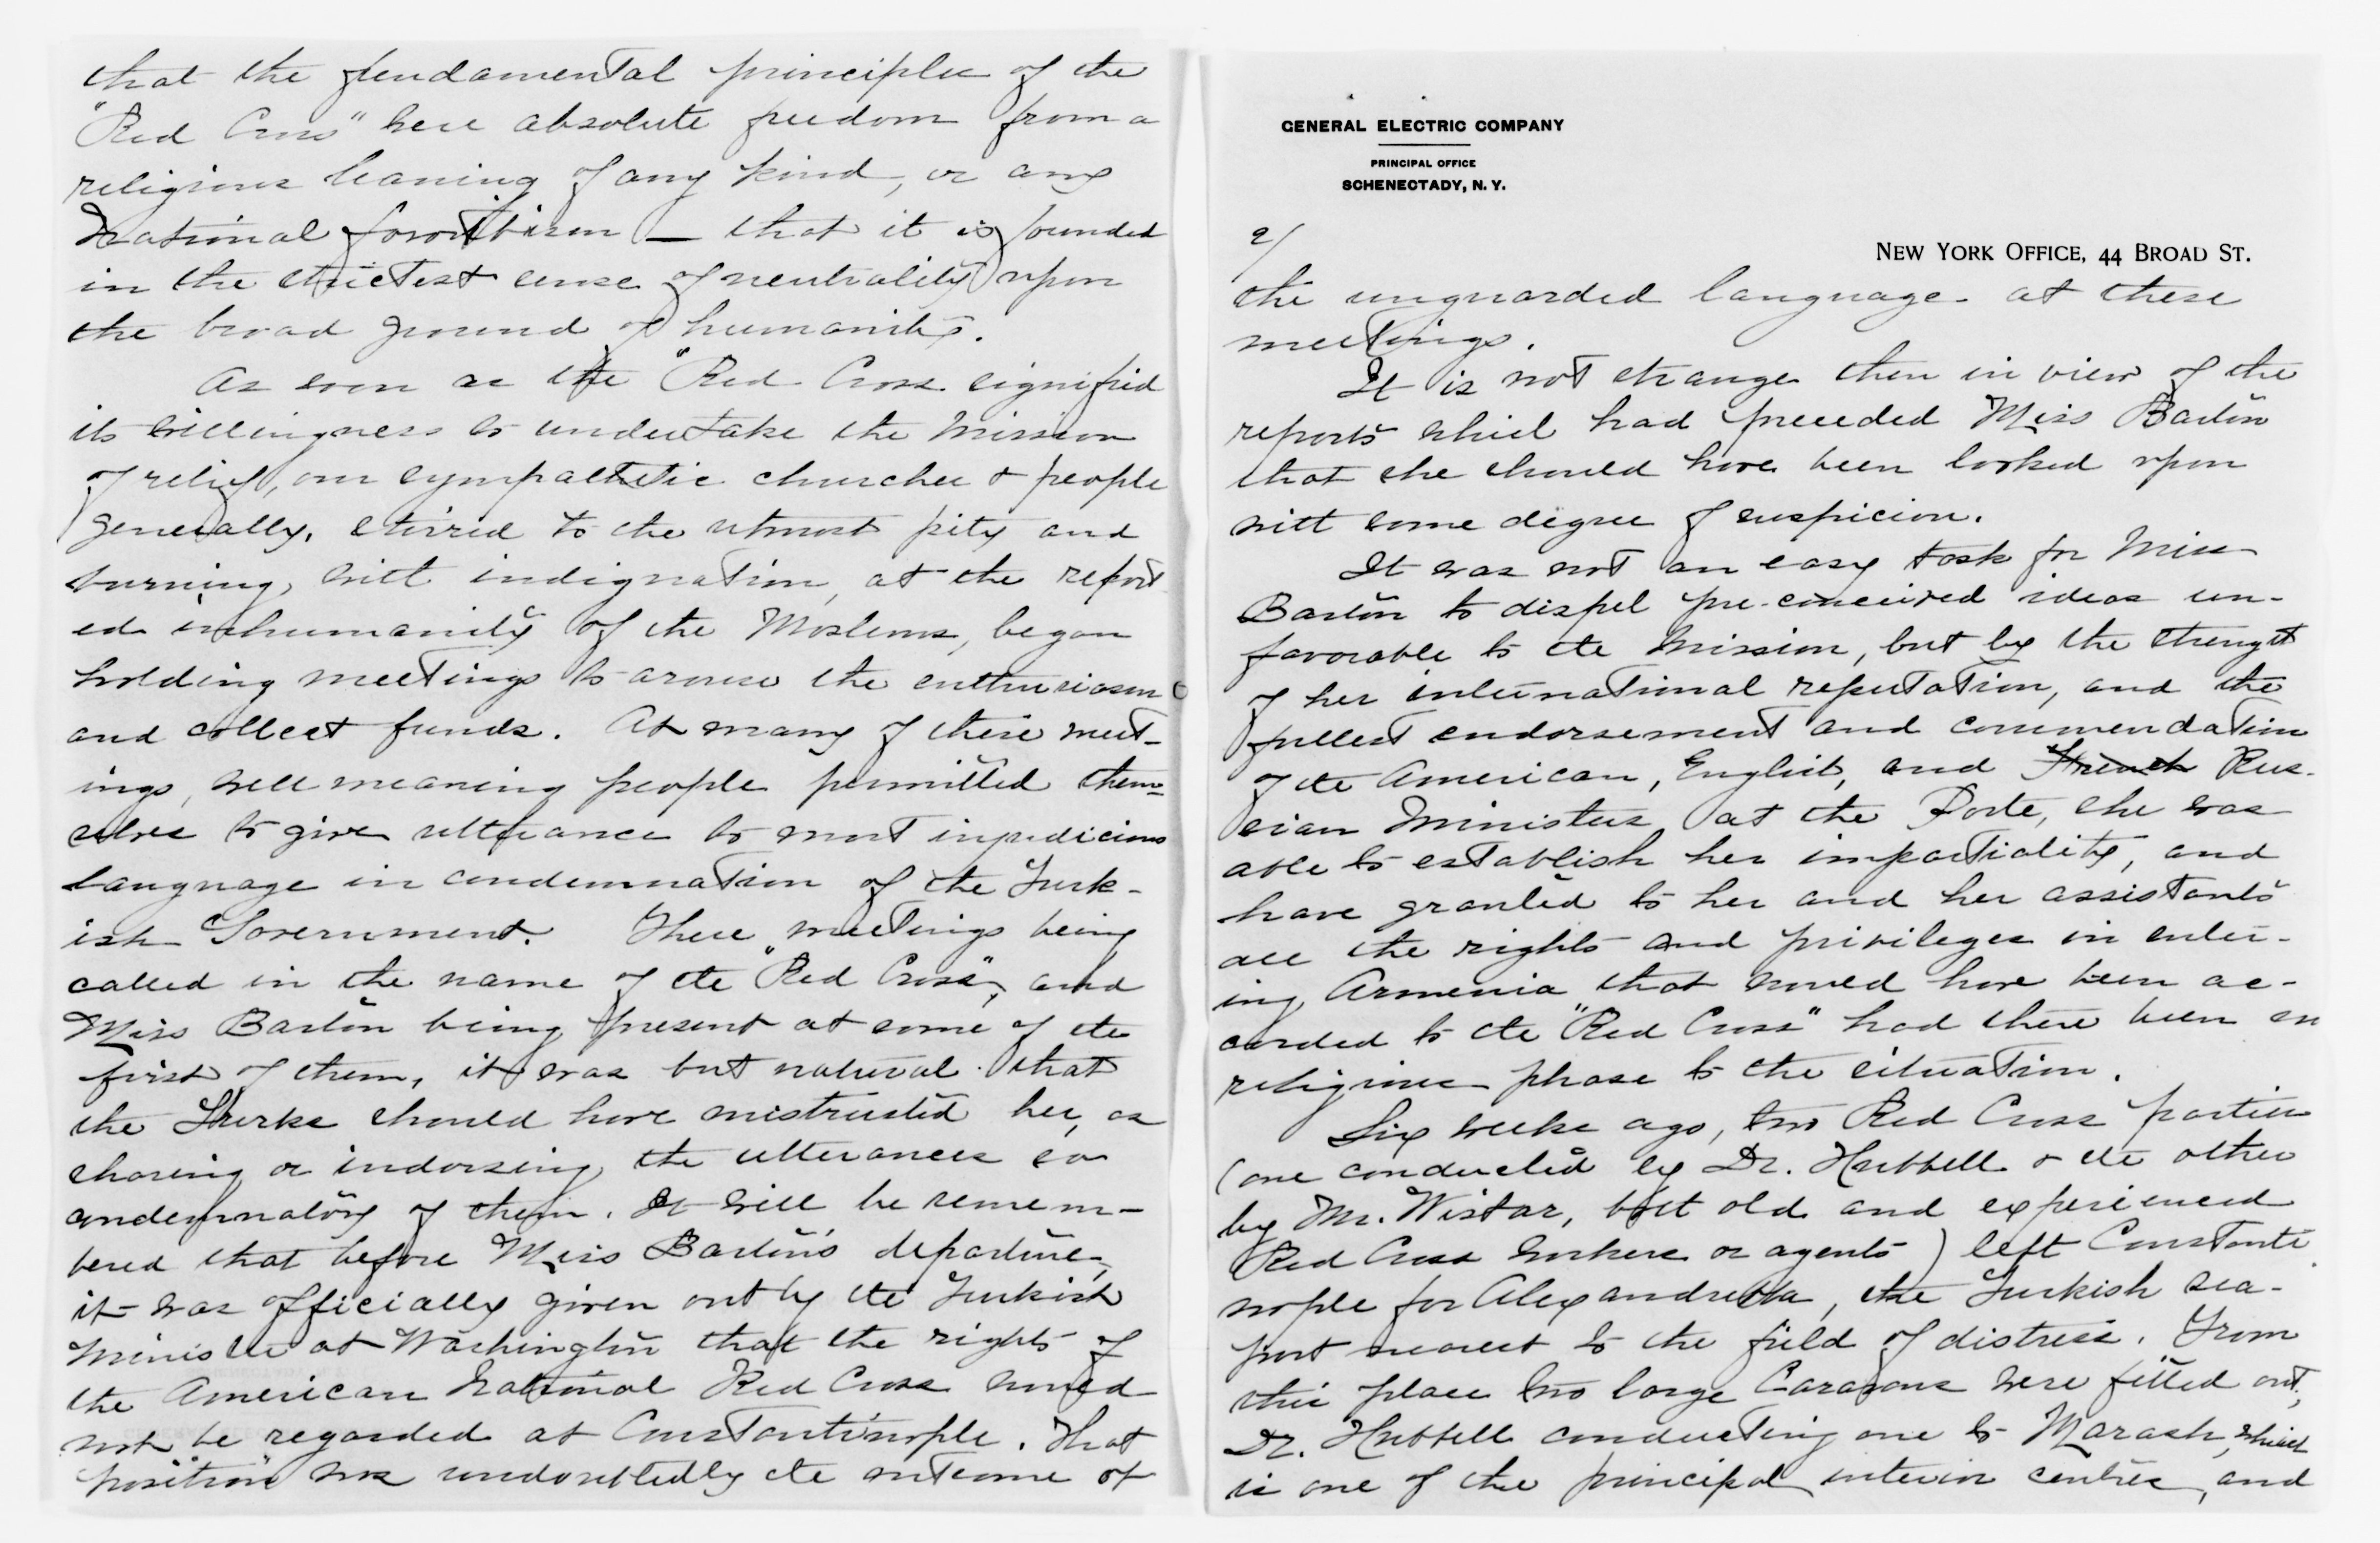 that the fundamental principles of the
"Red Cross" were absolute freedom from a
religious leaning of any kind, or any
National favoritism — that it is founded
in the strictest sense of neutrality upon
the broad ground of humanity.
As soon as the "Red Cross signified
its willingness to undertake the Mission
of relief, our sympathetic churches & people
generally, stirred to the utmost pity and
burning, with indignation, at the report-
ed inhumanity of the Moslems, began
holding meetings to arouse the enthusiasm
and collect funds. At many of these meet-
ings, well meaning people permitted them-
selves to give utterance to most injudicious
language in condemnation of the Turk-
ish Government. These meetings being
called in the name of the "Red Cross", and
Miss Barton being present at some of the
first of them, it was but natural that
the Turks should have mistrusted her, as
sharing or indorsing, the utterances so
condemnatory of them. It will be remem-
bered that before Miss Barton's departure,
it was officially given out by the Turkish
Minister at Washington that the rights of
the American National Red Cross would
not be regarded at Constantinople. That
position was undoubtedly the outcome of
GENERAL ELECTRIC COMPANY
PRINCIPAL OFFICE
SCHENECTADY, N. Y.
2/
NEW YORK OFFICE, 44 BROAD ST.
the unguarded language at these
meetings.
It is not strange then in view of the
reports which had preceded Miss Barton
that she should have been looked upon
with some degree of suspicion.
It was not an easy task for Miss
Barton to dispel pre-conceived ideas un-
favorable to the Mission, but by the strength
of her international reputation, and the
fullest endorsement and commendation
of the American, English, and French Rus-
sian Ministers at the Porte, she was
able to establish her impartiality, and
have granted to her and her assistants
all the rights and privileges in enter-
ing Armenia that would have been ac-
corded to the "Red Cross" had there been no
religious phase to the situation.
Six weeks ago, two Red Cross parties
(one conducted by Dr. Hubbell & the other
by Mr. Wistar, both old and experienced
Red Cross workers or agents) left Constanti
nople for Alexandretta, the Turkish sea-
port nearest to the field of distress. From
this place two large Caravans were fitted out,
Dr. Hubbell conducting one to Marash, which
is one of the principal interior centres, and